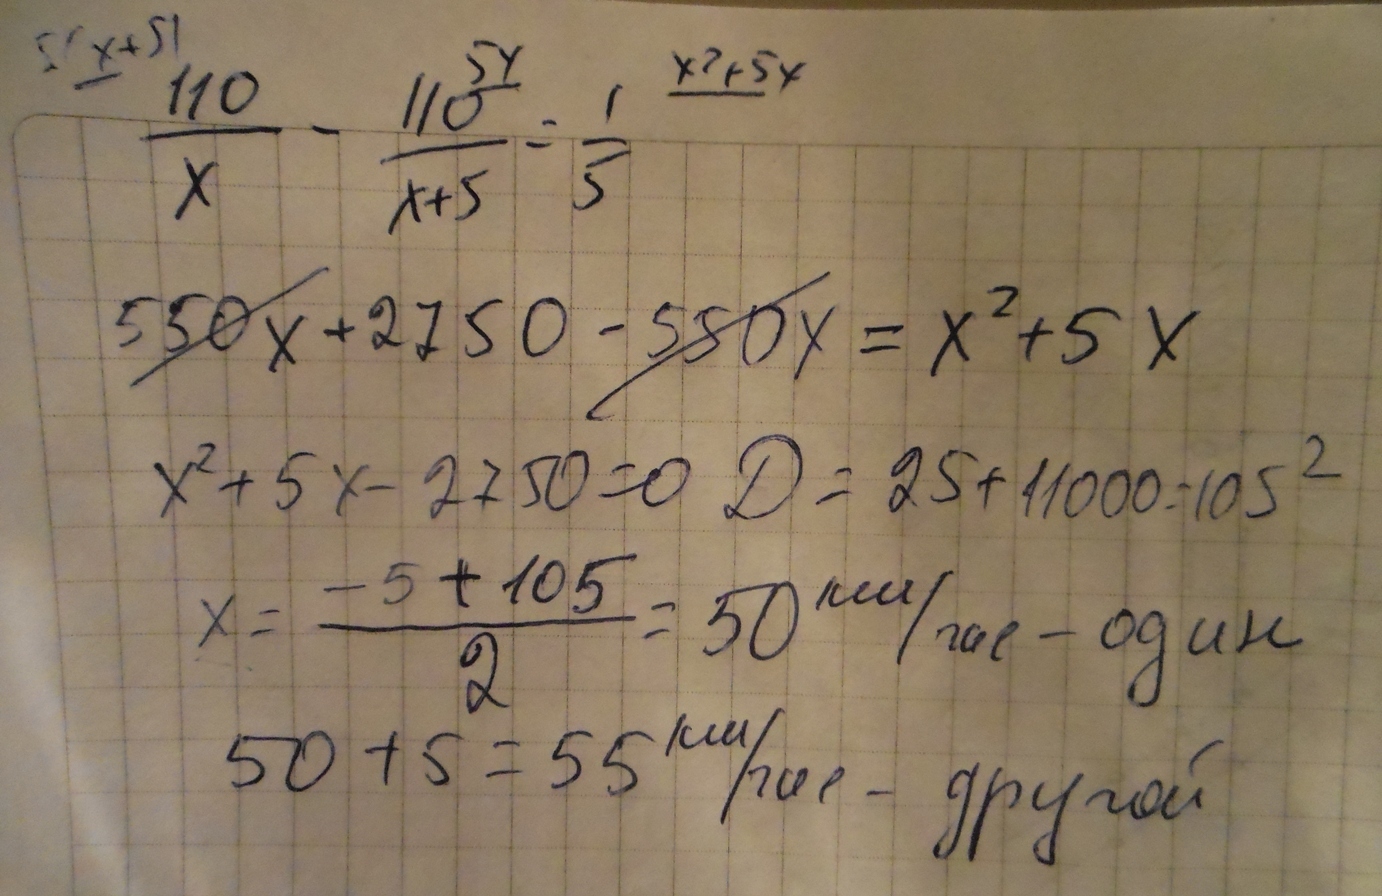 5(x+5) 5x x²+5x
110/x - 110/x+5 = 1/5
550x+2750-550x=x²+5x
x²+5x-2750=0 D=25+11000=105²
x=-5+105/2=50 км/час - один
50+5=55 км/час - другой